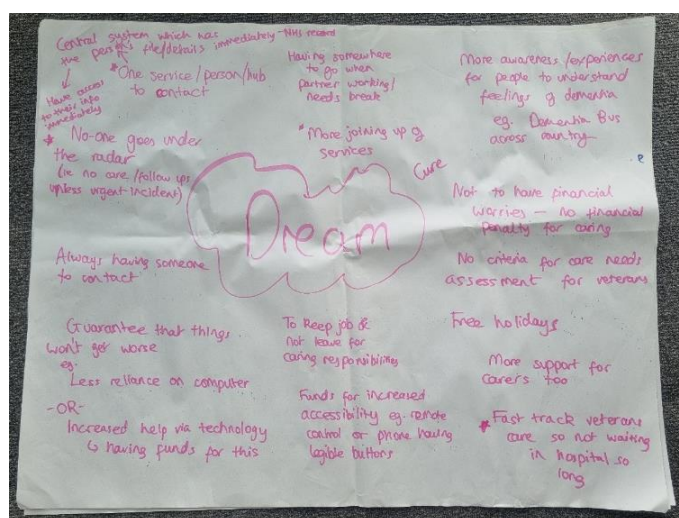 Central system which has
the person's file/details immediately - NHS record
↓
Have access
to their info
immediately
*One service/person/hub
to contact
* No-one goes under
the radar
(ie no care/follow ups
unless urgent incident)
Always having someone
to contact
Guarantee that things
won't get worse
eg.
Less reliance on computer
-OR-
Increased help via technology
↳ having funds for this
Having somewhere
to go when
partner working/
needs break
*More joining up of
services
Cure
Dream
To keep job &
not leave for
caring responsibilities
Funds for increased
accessibility eg. remote
control or phone having
legible buttons
More awareness/experiences
for people to understand
feelings of dementia
eg. Dementia Bus
across country
Not to have financial
worries - no financial
penalty for caring
No criteria for care needs
assessment for veterans
Free holidays
More support for
carers too
* Fast track veterans
care so not waiting
in hospital so
long